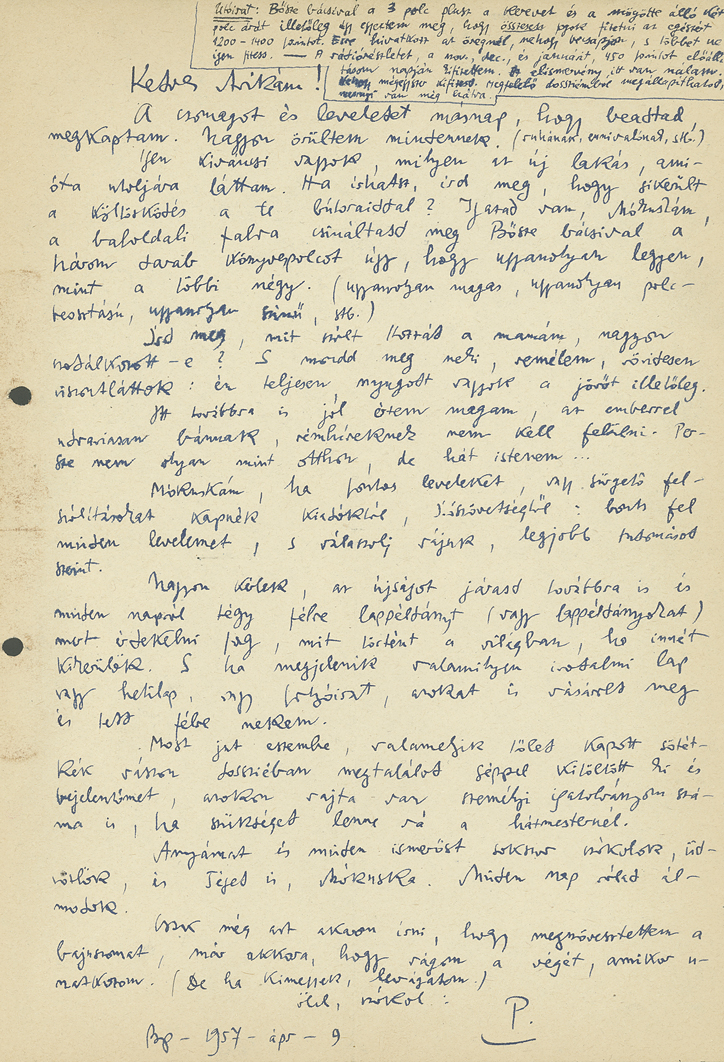 Utóirat: Bősze bácsival a 3 polc plusz a keret és a mögötte álló két
polc árát illetőleg úgy egyeztem meg, hogy összesen fizetni az egészért
1200-1400 forintot. Erre hivatkozz az öregnél, nehogy becsapjon, s többet ne
fizess. — A rádiórészletet, a nov., dec., és januári, 450 forintot előálli-
tásom napján kifizettem. Az elismervény itt van nálam.
megfelelő dossziémban megállapíthatod,
mennyi van még hátra.
Kedves Arikam!
A csomagot és leveledet másnap, hogy beadtad,
megkaptam. Nagyon örültem mindennek. (ruhának, ennivalónak, stb.)
Igen kíváncsi vagyok, milyen az új lakás, ami-
óta utoljára láttam. Ha írhatsz, írd meg, hogy sikerült
a költözködés a te bútoraiddal? Igazad van, Mókuskám,
a baloldali falra csináltasd meg Bősze bácsival a
három darab könyvespolcot úgy, hogy ugyanolyan legyen,
mint a többi négy. (ugyanolyan magas, ugyanolyan polc-
beosztású, ugyanolyan színű, stb.)
Írd meg, mit szólt hozzád a mamám, nagyon
csodálkozott-e? S mondd meg neki, remélem, rövidesen
viszontlátok: én teljesen nyugodt vagyok a jövőt illetőleg.
Itt továbbra is jól érzem magam, az emberrel
udvariasan bánnak, rémhíreknek nem kell felülni. Per-
sze nem olyan mint otthon, de hát istenem...
Mókuskám, ha fontos leveleket, vagy sürgető fel-
szólításokat kapnék kiadóktól, Írószövetségtől: bonts fel
minden levelemet, s válaszolj rájuk, legjobb tudomásod
szerint.
Nagyon kérlek, az újságot járasd továbbra is és
minden napról tégy félre lappéldányt (vagy lappéldányokat)
mert érdekelni fog, mit történt a világban, ha innét
kikerülök. S ha megjelenik valamilyen irodalmi lap
vagy hetilap, vagy folyóirat, azokat is vásárold meg
és tedd félre nekem.
Most jut eszembe, valamelyik tőled kapott sötét-
kék vászon dossziéban megtalálod géppel kitöltött ki és
bejelentőmet, azokon rajta van személyi igazolványom szá-
ma is, ha szükséged lenne rá a házmesternél.
Anyámat és minden ismerőst sokszor csókolok, üd-
vözlök, és Téged is, Mókuska. Minden nap rólad ál-
modok.
Csak még azt akarom írni, hogy megnövesztettem a
bajuszomat, már akkora, hogy rágom a végét, amikor u-
natkozom. (De ha kimegyek, levágatom.)
ölel, csókol:
P.
Bp - 1957 - ápr - 9